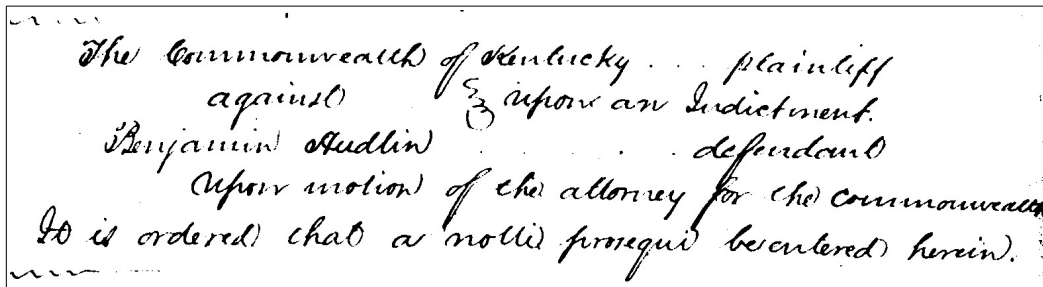 The Commonwealth of Kentucky . . . plaintiff
against } upon an Indictment.
Benjamin Hudlin . . . . . defendant
Upon motion of the attorney for the commonwealth
It is ordered that a nolli prosequi be entered herein.